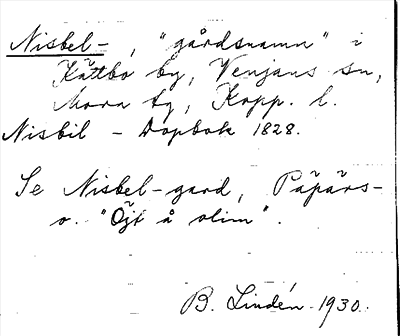 Nisbel- , "gårdsnamn" i
Kättbo by, Venjans sn,
Mora tg, Kopp. l.
Nisbil - Dopbok 1828.
Se Nisbel-gard, Päpärs-
o. "Öjt å olim".
B. Lindén 1930.